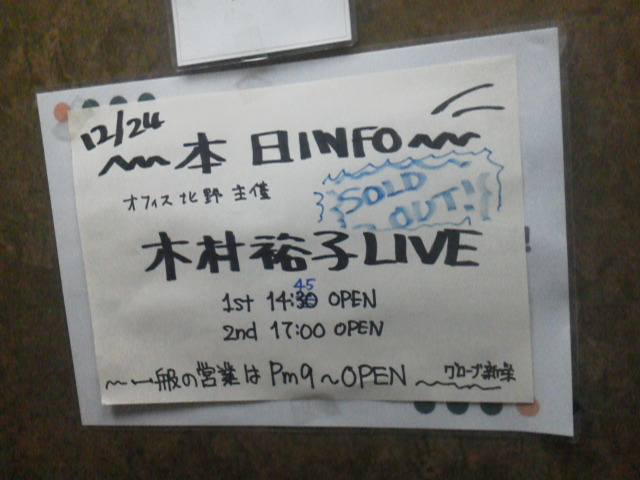 12/24
〜本日INFO〜
オフィス北野主催
SOLD OUT!
木村裕子LIVE
1st 14:45 OPEN
2nd 17:00 OPEN
〜一般の営業は Pm9〜OPEN〜